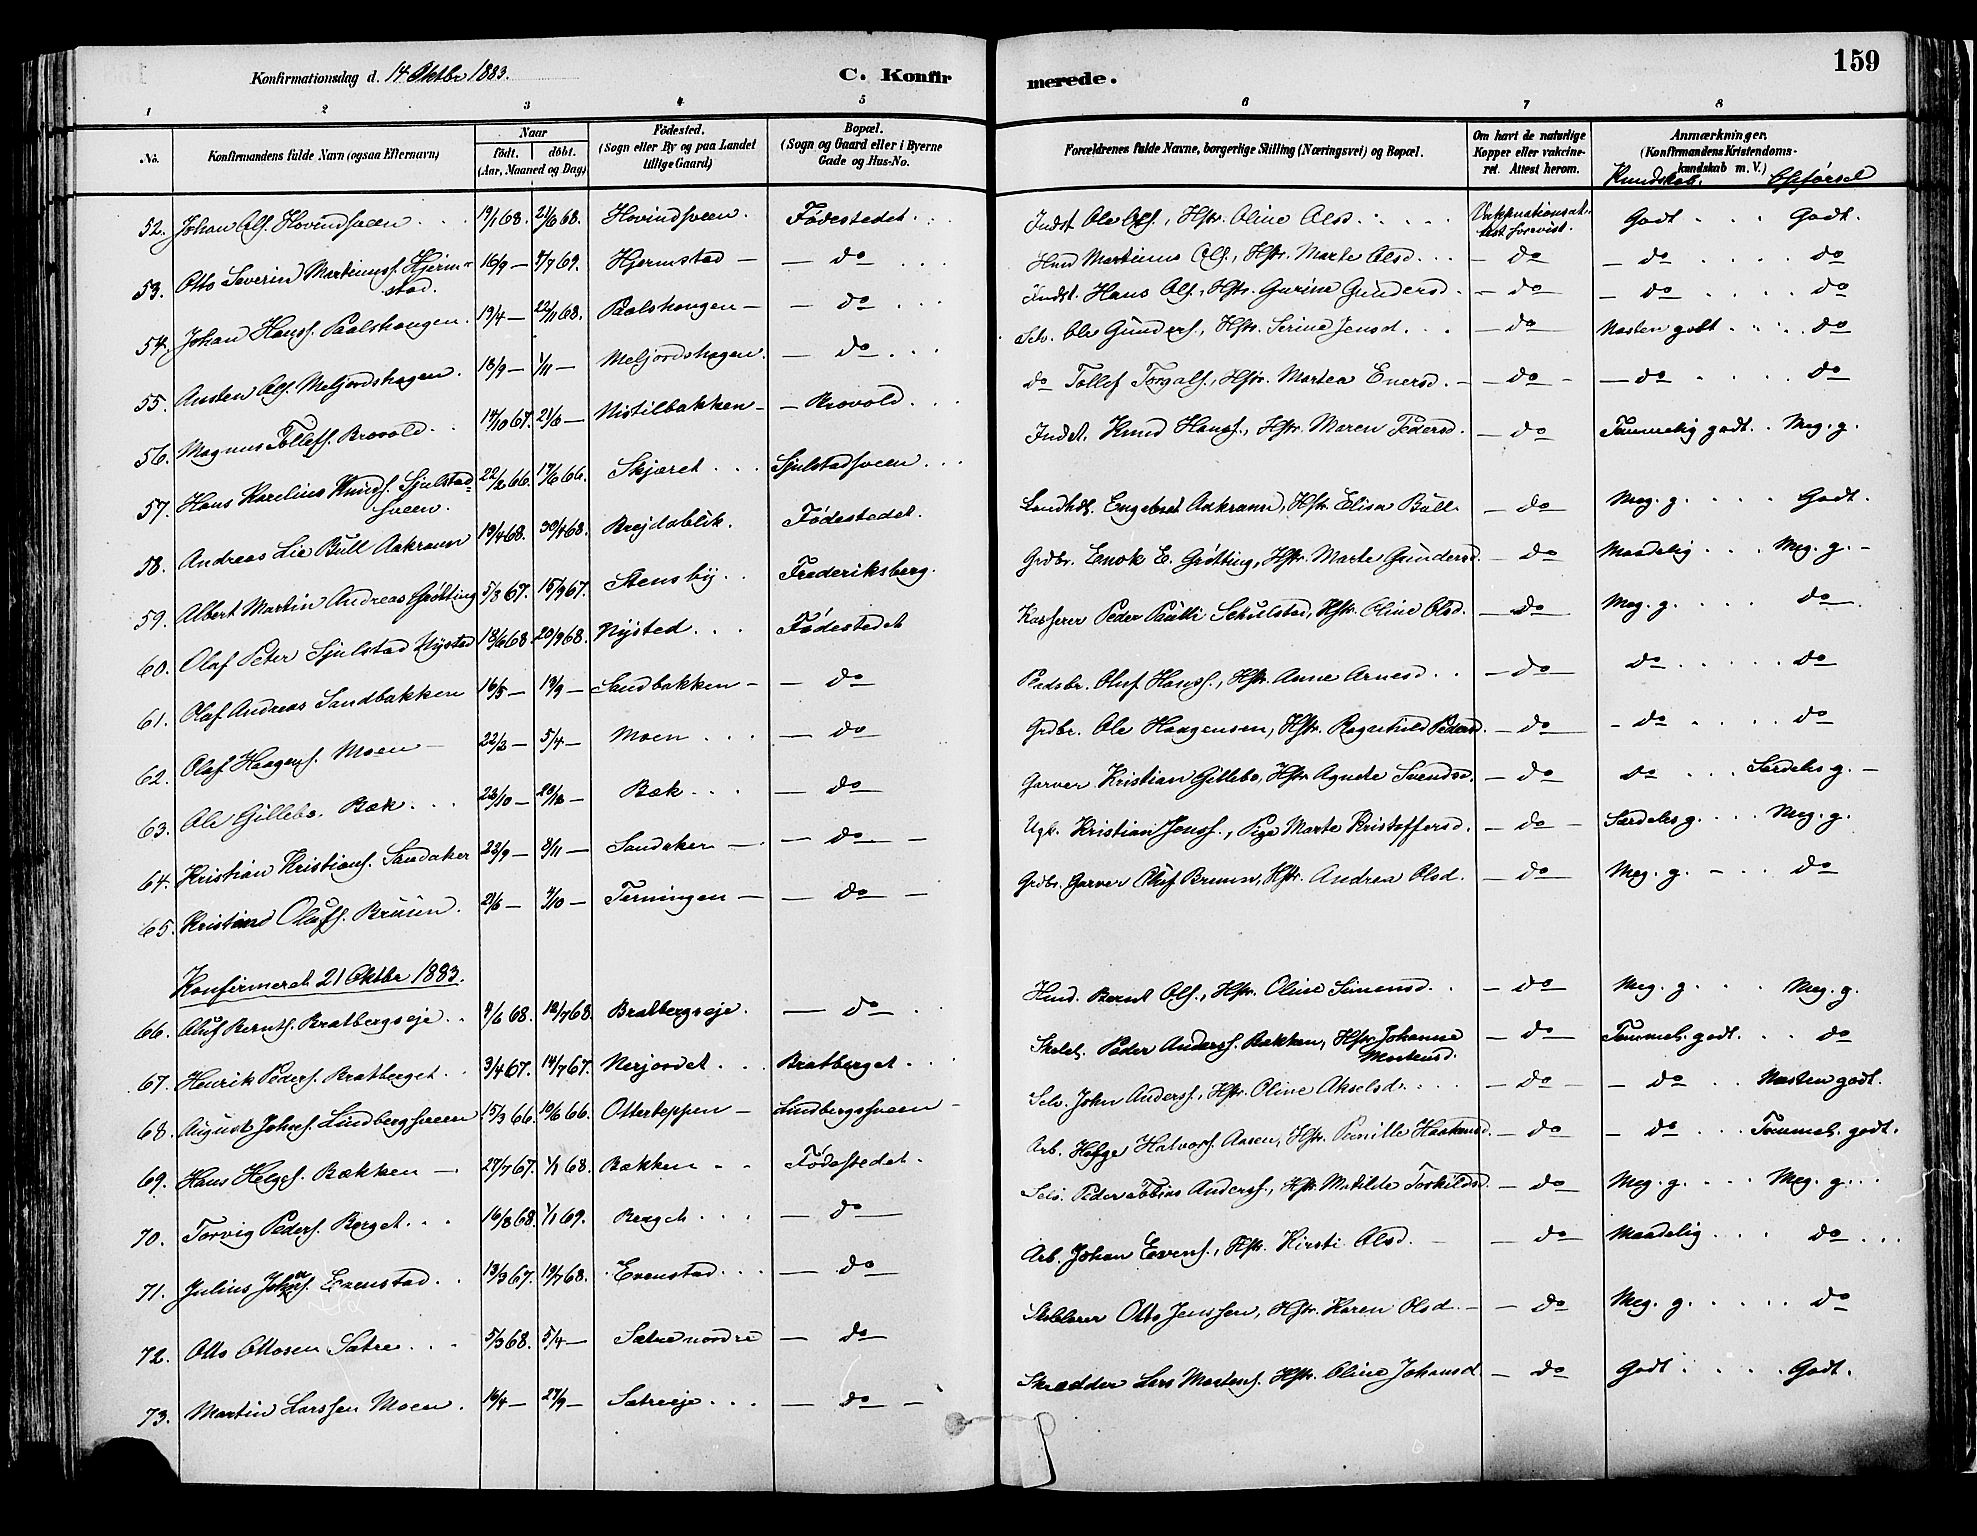 159
Konfirmationsdag d. 14 Oktbr 1883.
C. Konfirmerede.
1 2 3 4 5 6 7 8
No. Konfirmandens fulde Navn (ogsaa Efternavn) Naar født. døbt. (Aar, Maaned og Dag) Fødested. (Sogn eller By og paa Landet tillige Gaard) Bopæl. (Sogn og Gaard eller i Byerne Gade og Hus-No. Forældrenes fulde Navne, borgerlige Stilling (Næringsvei) og Bopæl. Om havt de naturlige Kopper eller vakcineret. Attest herom. Anmærkninger. (Konfirmandens Kristendomskundskab m. V.)
Kundskab. Opførsel
52. Johan Ols. Hovindsveen 19/1 68. 21/6 68. Hovindsveen. Fødestedet. Indst. Ole Ols., Hstr. Oline Olsd. Vakcinationsattest forevist. Godt Godt.
53. Otto Severin Martinuss. Hjermstad. 16/9 — 4/7 69. Hjermstad — do Hmd Martinus Ols., Hstr. Marte Olsd. do do do
54. Johan Hanss. Paalshaugen. 19/4 — 22/11 68. Paalshaugen — do Indst. Hans Ols., Hstr. Gurine Gundersd. do do do
55. Austen Ols. Meljordshagen. 18/9 — 1/11 — Meljordshagen. do Selv. Ole Gunders., Hstr. Serine Jensd. do Næsten godt do
56. Magnus Tollefs. Brovold. 14/10 67. 21/6 — Nistilbakken — Brovold. do Tollef Torgals., Hstr. Martea Enersd. do do do
57. Hans Karelius Knuds. Sjulstadsveen. 22/2 66. 17/6 66. Skjæret Sjulstadsveen Indst. Knud Hanss., Hstr. Maren Pedersd. do Temmelig godt. Meg. g.
58. Andreas Lie Bull Aakrann 19/4 68. 30/4 68. Brejdablik. Fødestedet. Landhdl. Engebret Aakrann, Hstr. Elisa Bull do Meg. g. Godt.
59. Albert Martin Andreas Grøtting 5/8 67. 15/9 67. Stensby Frederiksberg. Grdbr. Enok E. Grøtting, Hstr. Marte Gundersd. do Maadelig Meg. g.
60. Olaf Peter Sjulstad Nysted 18/6 68 20/9 68. Nysted Fødestedet Kasserer Peder Paulli Schulstad, Hstr. Oline Olsd. do Meg. g. do
61. Olaf Andreas Sandbakken 16/5 — 19/9 — Sandbakken — do Pladsbr. Oluf Hanss., Hstr. Anne Arnesd do do do
62. Olaf Haagens. Moen 22/2 — 5/4 — Moen do Grdbr. Ole Haagensen, Hstr. Ragnhild Pedersd. do do do
63. Ole Gillebo. Bæk 23/10 — 28/12 — Bæk do Garver Kristian Gillebo, Hstr Agnete Svendsd. do do Særdeles g.
64. Kristian Kristians. Sandaker 22/9 — 8/11 — Sandaker — do Ugk. Kristian Jenss., Pige Marte Kristoffersd. do Særdeles g. Meg. g.
65. Kristian Olufs. Bruun. 2/6 — 4/10 — Terningen — do Grdbr. Garver Oluf Bruun, Hstr. Andrea Olsd. do Meg. g. do
Konfirmeret 21 Oktbr 1883.
66. Oluf Bernts. Bratbergseje 4/6 68. 12/7 68. Bratbergseje. do Hmd. Bernt Ols., Hstr. Oline Simensd. do Meg. g. Meg. g.
67. Henrik Peders. Bratberget. 3/4 67. 14/7 67. Nerjordet Bratberget. Peder Anderss. Bakken, Hstr. Johanne Mortensd. do Temmel. godt. do
68. August Johns. Lindbergsveen 15/3 66. 10/6 66. Otterteppen — Lindbergsveen Selv. John Anderss., Hstr. Oline Akselsd. do do Næsten godt.
69. Hans Helges. Bækken 27/7 67. 1/1 68. Bækken Fødestedet. Arb. Helge Halvors. Aasen, Hstr. Pernille Haakensd. do do Temmel. godt.
70. Torvig Peders. Berget. 16/8 68. 1/1 69. Berget do Selv. Peder Anderss., Hstr. Matilde Torkildsd. do Meg. g. Meg. g.
71. Julius Johans. Evenstad. 13/3 67. 19/7 68. Evenstad. do Arb. Johan Evens., Hstr. Kirsti Olsd. do Maadelig do
72. Otto Ottosen Sætre 5/3 68. 5/4 — Sætre nordre do Otto Jenssen, Hstr. Karen Olsd. do Meg. g. do
73. Martin Larssen Moen. 16/4 — 27/9 — Sætreeje do Skrædder Lars Mortens. Hstr. Oline Johansd. do Godt Godt.